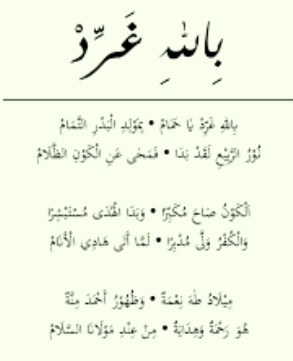 بِاللهِ غَرِّدْ
بِاللهِ غَرِّدْ يَا حَمَامْ • بِمَوْلِدِ الْبَدْرِ التَّمَامْ
نُوْرُ الرَّبِيْعِ لَقَدْ بَدَا • فَمَحَى عَنِ الْكَوْنِ الظَّلَامْ
اَلْكَوْنُ صَاحَ مُكَبِّرًا • وَبَدَا الْهُدَى مُسْتَبْشِرًا
وَالْكُفْرُ وَلَّى مُدْبِرًا • لَمَّا أَتَى هَادِي الْأَنَامْ
مِيْلَادُ طٰهَ نِعْمَةٌ • وَظُهُوْرُ أَحْمَدَ مِنَّةٌ
هُوَ رَحْمَةٌ وَهِدَايَةٌ • مِنْ عِنْدِ مَوْلَانَا السَّلَامْ